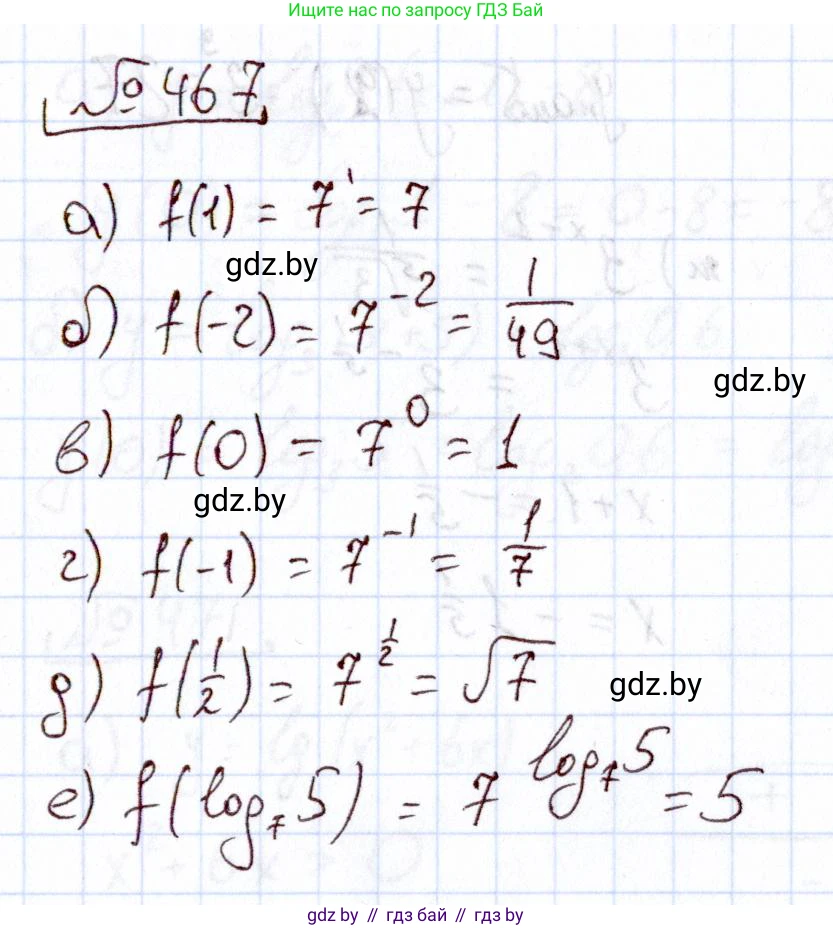 Ищите нас по запросу ГДЗ Бай
№ 467
а) f(1) = 7¹ = 7
gdz.by
б) f(-2) = 7⁻² = 1/49
gdz.by
в) f(0) = 7⁰ = 1
gdz.by
г) f(-1) = 7⁻¹ = 1/7
д) f(1/2) = 7^(1/2) = √7
gdz.by
е) f(log₇5) = 7^(log₇5) = 5
gdz by // gdz бай // gdz by